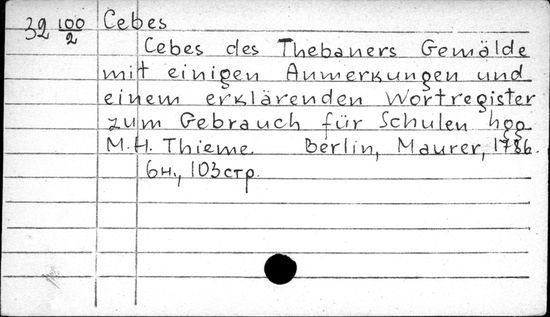 32 100/2 Cebes
Cebes des Thebaners Gemälde
mit einigen Anmerkungen und
einem erklärenden Wortregister
zum Gebrauch für Schulen hgg
M.H. Thieme. Berlin, Maurer, 1786.
6н., 103стр.